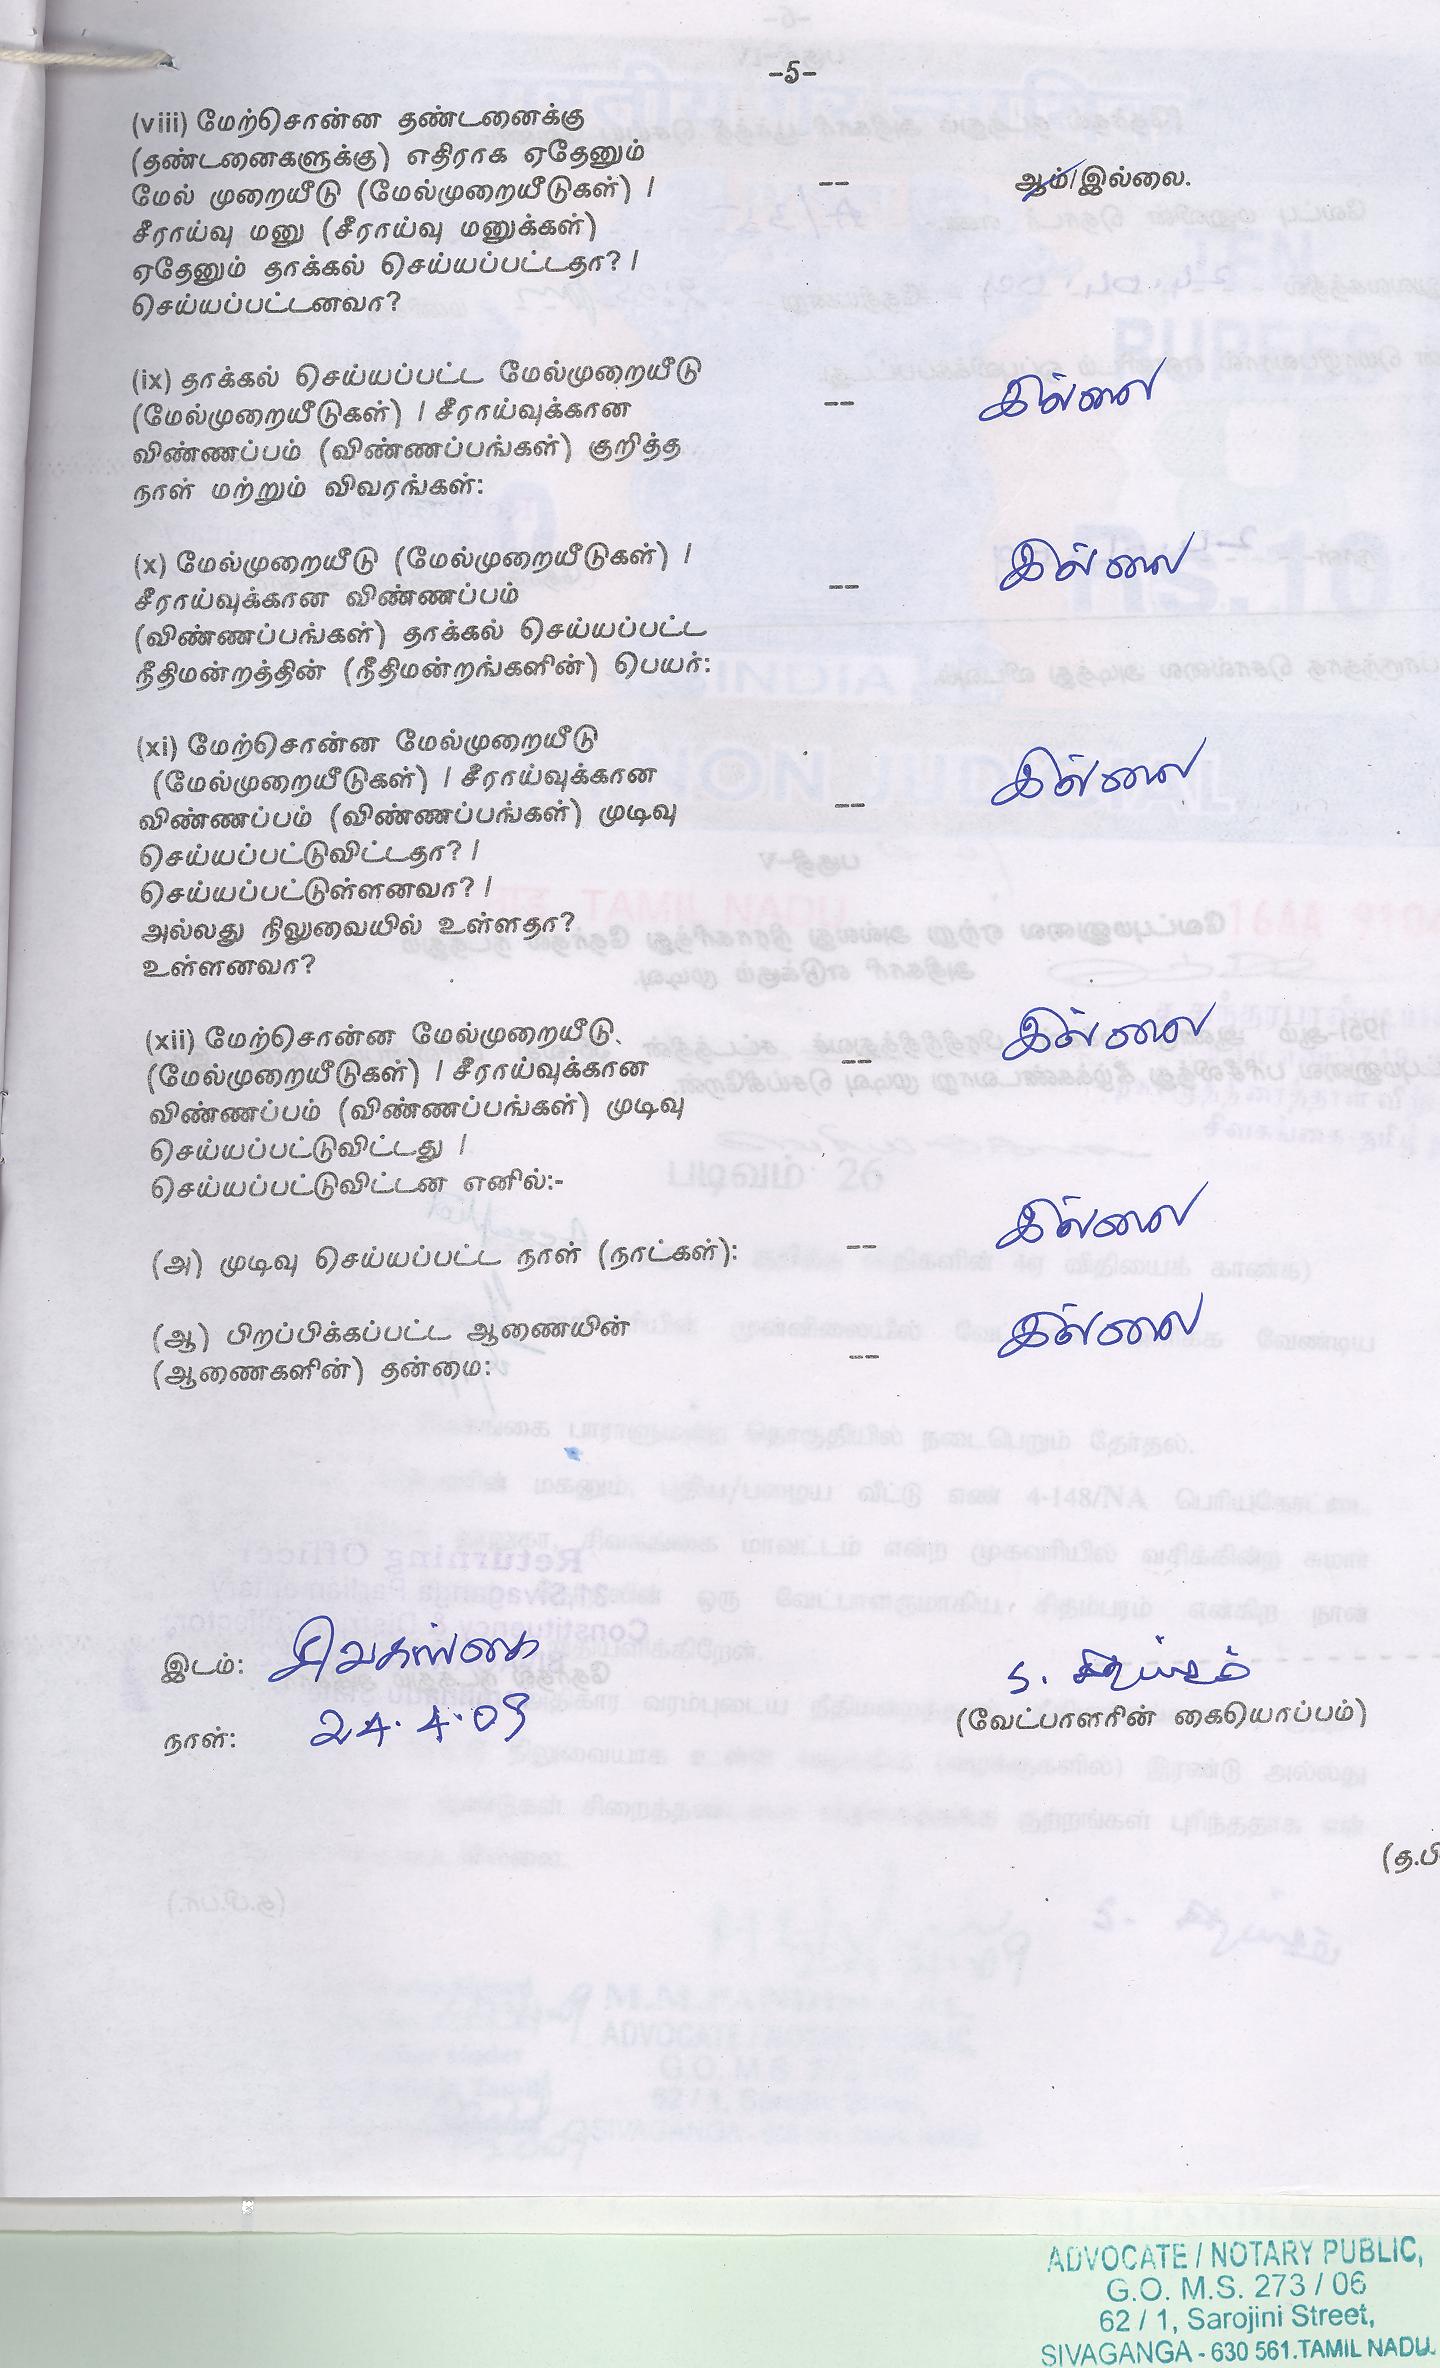 -5-
(viii) மேற்சொன்ன தண்டனைக்கு
(தண்டனைகளுக்கு) எதிராக ஏதேனும்
மேல் முறையீடு (மேல்முறையீடுகள்) / -- ஆம்/இல்லை.
சீராய்வு மனு (சீராய்வு மனுக்கள்)
ஏதேனும் தாக்கல் செய்யப்பட்டதா? /
செய்யப்பட்டனவா?
(ix) தாக்கல் செய்யப்பட்ட மேல்முறையீடு
(மேல்முறையீடுகள்) / சீராய்வுக்கான -- இல்லை
விண்ணப்பம் (விண்ணப்பங்கள்) குறித்த
நாள் மற்றும் விவரங்கள்:
(x) மேல்முறையீடு (மேல்முறையீடுகள்) /
சீராய்வுக்கான விண்ணப்பம் -- இல்லை
(விண்ணப்பங்கள்) தாக்கல் செய்யப்பட்ட
நீதிமன்றத்தின் (நீதிமன்றங்களின்) பெயர்:
(xi) மேற்சொன்ன மேல்முறையீடு
(மேல்முறையீடுகள்) / சீராய்வுக்கான
விண்ணப்பம் (விண்ணப்பங்கள்) முடிவு -- இல்லை
செய்யப்பட்டுவிட்டதா? /
செய்யப்பட்டுள்ளனவா? /
அல்லது நிலுவையில் உள்ளதா?
உள்ளனவா?
(xii) மேற்சொன்ன மேல்முறையீடு
(மேல்முறையீடுகள்) / சீராய்வுக்கான -- இல்லை
விண்ணப்பம் (விண்ணப்பங்கள்) முடிவு
செய்யப்பட்டுவிட்டது /
செய்யப்பட்டுவிட்டன எனில்:-
(அ) முடிவு செய்யப்பட்ட நாள் (நாட்கள்): -- இல்லை
(ஆ) பிறப்பிக்கப்பட்ட ஆணையின்
(ஆணைகளின்) தன்மை: -- இல்லை
இடம்: சிவகங்கை
நாள்: 24.4.09
(வேட்பாளரின் கையொப்பம்)
(த.பி
ADVOCATE / NOTARY PUBLIC,
G.O. M.S. 273 / 06
62 / 1, Sarojini Street,
SIVAGANGA - 630 561.TAMIL NADU.